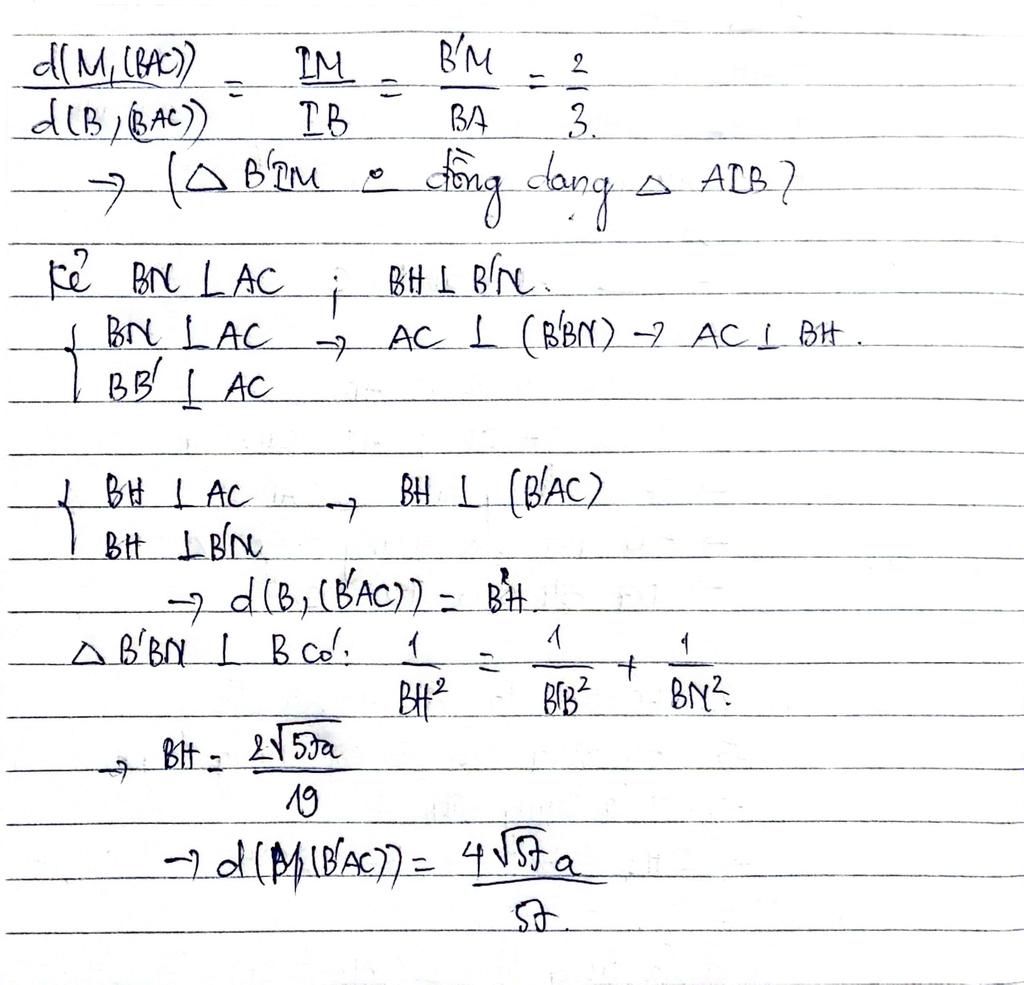 d(M,(BAC)) / d(B,(BAC)) = IM / IB = B'M / BA = 2 / 3.
→ (△ B'IM đồng dạng △ AIB)
Kẻ BN ⊥ AC ; BH ⊥ B'N.
{ BN ⊥ AC → AC ⊥ (B'BN) → AC ⊥ BH.
BB' ⊥ AC
{ BH ⊥ AC → BH ⊥ (B'AC)
BH ⊥ B'N
→ d(B,(B'AC)) = BH.
△ B'BN ⊥ B có: 1 / BH² = 1 / B'B² + 1 / BN².
→ BH = 2√57a / 19
→ d(M,(B'AC)) = 4√57 a / 57.